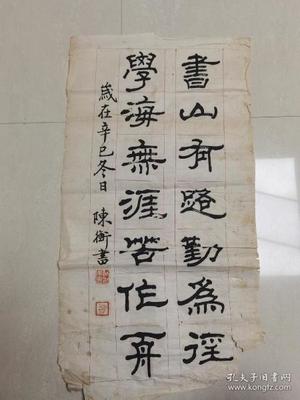 書山有路勤為徑
學海無涯苦作舟
歲在辛巳冬日
陳衛書
孔夫子旧书网